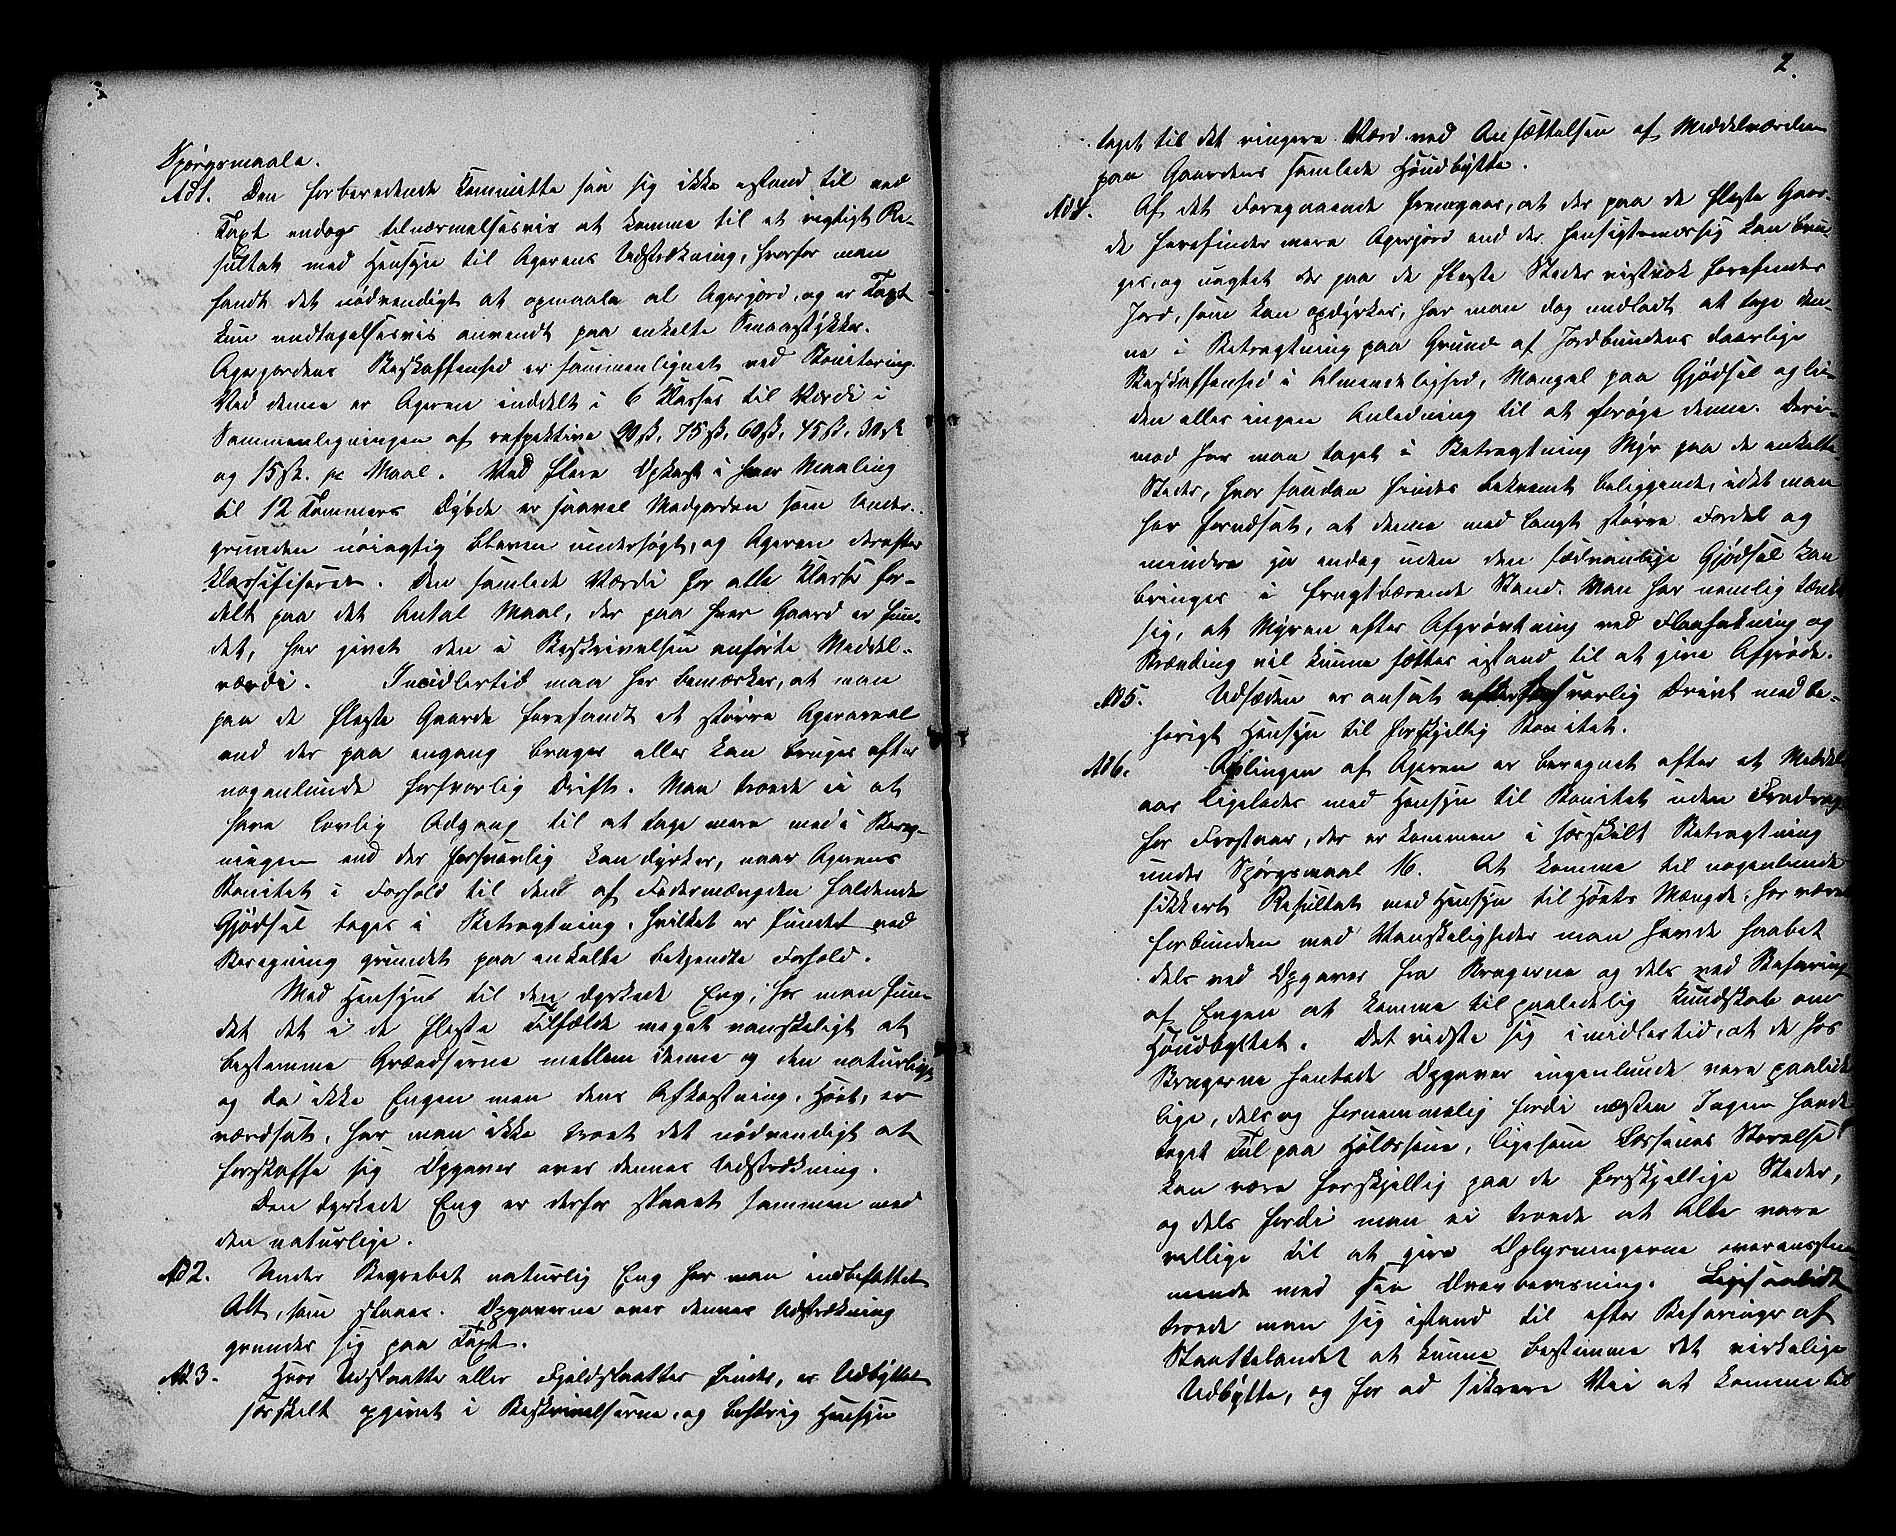 Spørgsmaale.
Ad 1. Den forberedende Committe saa sig ikke istand til ved
Taxt endogs tilnærmelsesvis at komme til et rigtigt Re-
sultat med Hensyn til Agerens Udstrækning, hvorfor man
fandt det nødvendigt at opmaale al Agerjord, og er Taxt
kun undtagelsesvis anvendt paa enkelte Smaastykker.
Agerjordens Beskaffenhed er sammenlignet ved Bonitering.
Ved denne er Ageren inddelt i 6 Klasser til Værdi i
Sammenligningen af respektive 90 ß, 75 ß, 60 ß, 45 ß, 30 ß
og 15 ß. pr Maal. Ved flere Opkast i hver Maaling
til 12 Tommers Dybde er saavel Madjorden som Under-
grunden nøiagtig bleven undersøgt, og Ageren derefter
klassificeret. Den samlede Værdi for alle Klasser for-
delt paa det Antal Maal, der paa hver Gaard er fun-
det, har givet den i Beskrivelsen anførte Middel-
værdi. Imidlertid maa her bemærkes, at man
paa de fleste Gaarde forefandt et større Agerareal
end der paa engang bruges eller kan bruges efter
nogenlunde forsvarlig Drift. Man troede ei at
have lovlig Adgang til at tage mere med i Bereg-
ningen end der forsvarlig kan dyrkes, naar Agerens
Bonitet i Forhold til den af Fodermængden faldende
Gjødsel tages i Betragtning, hvilket er fundet ved
Beregning grundet paa enkelte bekjendte Forhold.
Med Hensyn til den dyrkede Eng, har man fun-
det det i de fleste Tilfælde meget vanskeligt at
bestemme Grændserne mellem denne og den naturlige
og da ikke Engen men dens Afkastning, Høet, er
værdsat, har man ikke troet det nødvendigt at
forskaffe sig Opgaver over dennes Udstrækning.
Den dyrkede Eng er derfor slaaet sammen med
den naturlige.
Ad 2. Under Begrebet naturlig Eng har man indbefattet
Alt, som slaaes. Opgaverne over dennes Udstrækning
grunder sig paa Taxt.
Ad 3. Hvor Udslaatter eller Fjeldslaatter findes, er Udbyttet
særskilt opgivet i Beskrivelserne, og behørig Hensyn
2.
taget til det ringere Værd ved Ansættelsen af Middelværdien
paa Gaardens samlede Høudbytte.
Ad 4. Af det Foregaaende fremgaar, at der paa de fleste Gaar-
de forefindes mere Agerjord end der hensigtsmæssig kan bru-
ges, og uagtet der paa de fleste Steder vistnok forefindes
Jord, som kan opdyrkes, har man dog undladt at tage den-
ne i Betragtning paa Grund af Jordbundens daarlige
Beskaffenhed i Almindelighed, Mangel paa Gjødsel og li-
den eller ingen Anledning til at forøge denne. Deri-
mod har man taget i Betragtning Myr paa de enkelte
Steder, hvor saadan findes bekvemt beliggende, idet man
har forudsat, at denne med langt større Fordel og
mindre ja endog uden den sædvanlige Gjødsel kan
bringes i frugtbærende Stand. Man har nemlig tænkt
sig, at Myren efter Afgrøvtning ved Flaahakning og
Brænding vil kunne sættes istand til at give Afgrøde.
Ad 5. Udsæden er ansat efter forsvarlig Drivt med be-
hørigt Hensyn til forskjellig Bonitet.
Ad 6. Avlingen af Ageren er beregnet efter et Middel
aar ligeledes med Hensyn til Bonitet uden Fradrag
for Frostaar, der er kommen i særskilt Betragtning
under Spørgsmaal 16. At komme til nogenlunde
sikkert Resultat med Hensyn til Høets Mængde, har været
forbunden med Vanskeligheder man havde haabet
dels ved Opgaver fra Brugerne og dels ved Befaring
af Engen at komme til paalidelig Kundskab om
Høudbyttet. Det vidste sig imidlertid, at de hos
Brugerne hentede Opgaver ingenlunde vare paalide
lige, dels og fornemmelig fordi næsten Ingen havde
taget Tal paa Hølæssene, ligesom Læssenes Størrelse
kan være forskjellig paa de forskjellige Steder,
og dels fordi man ei troede at Alle vare
villige til at give Oplysningerne overensstem-
mende med sin Overbevisning. Ligesaalidt
troede man sig istand til efter Befaringer af
Slaattelandet at kunne bestemme det virkelige
Udbytte, og for ad sikrere Vei at komme til